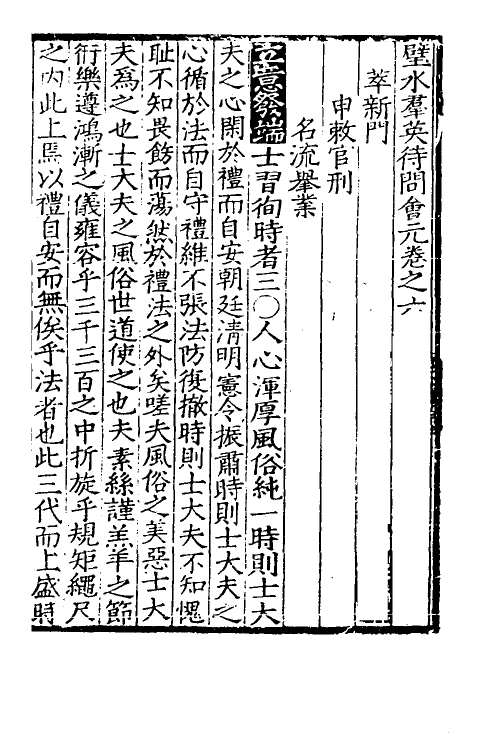 璧水羣英待問會元卷之六
萃新門
申敕官刑
名流舉業
立意發端士習徇時者三○人心渾厚風俗純一時則士大
夫之心閑於禮而自安朝廷淸明憲令振肅時則士大夫之
心循於法而自守禮維不張法防復撤時則士大夫不知愧
耻不知畏飭而蕩然於禮法之外矣嗟夫風俗之美惡士大
夫爲之也士大夫之風俗世道使之也夫素絲謹羔羊之節
衎樂遵鴻漸之儀雍容乎三千三百之中折旋乎規矩繩尺
之内此上焉以禮自安而無俟乎法者也此三代而上盛時